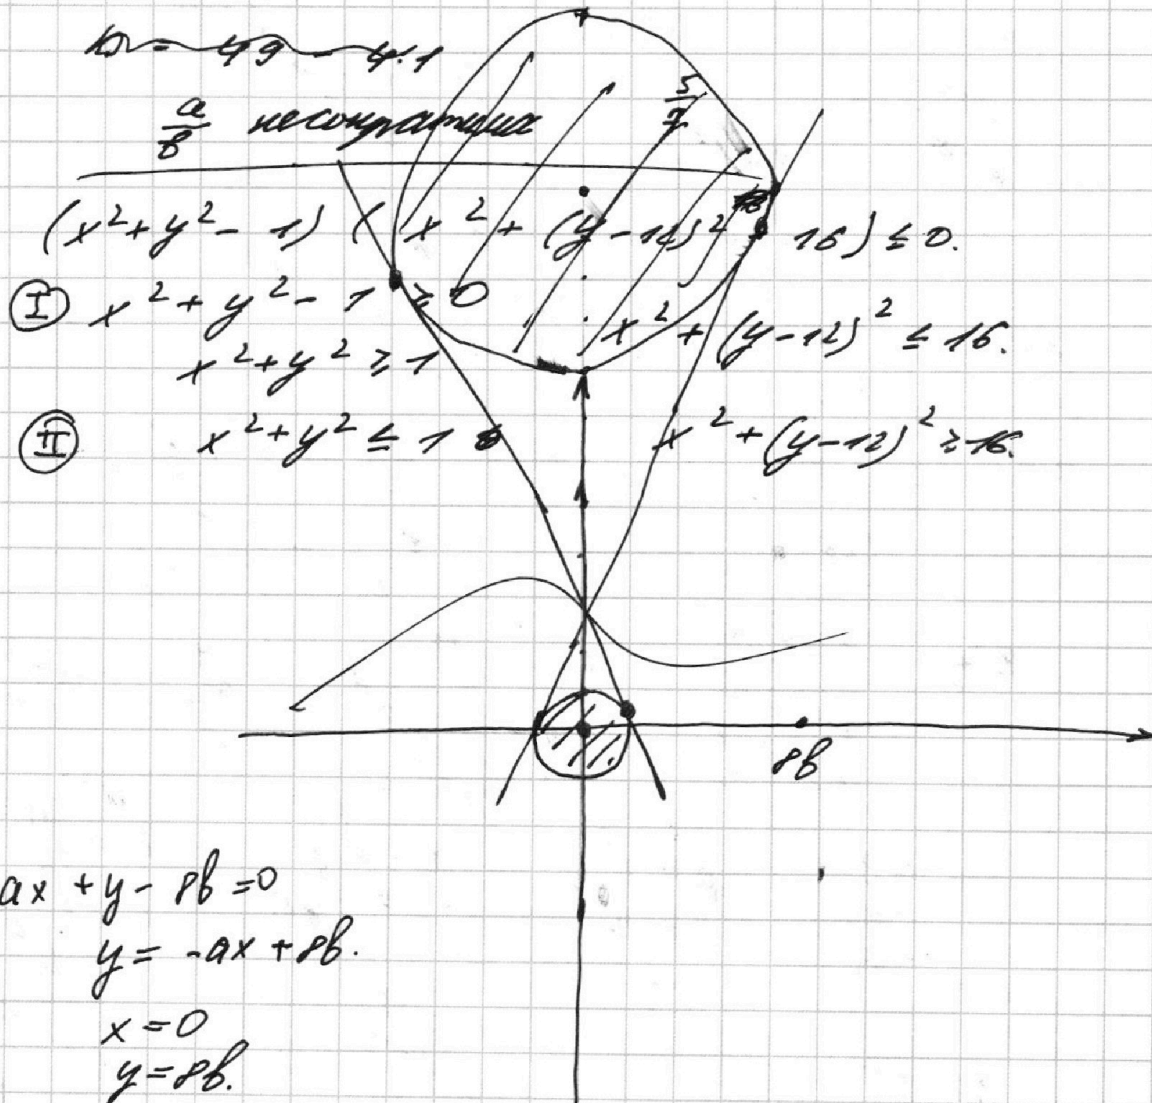 D = 49 - 4·1
a/b несократима
5/7
(x²+y²-1)(x²+(y-12)²-16) ≤ 0.
I x²+y²-1 ≥ 0
x²+(y-12)² ≤ 16.
x²+y² ≥ 1
II x²+y² ≤ 1 x²+(y-12)² ≥ 16.
8b
ax+y-8b=0
y=-ax+8b.
x=0
y=8b.